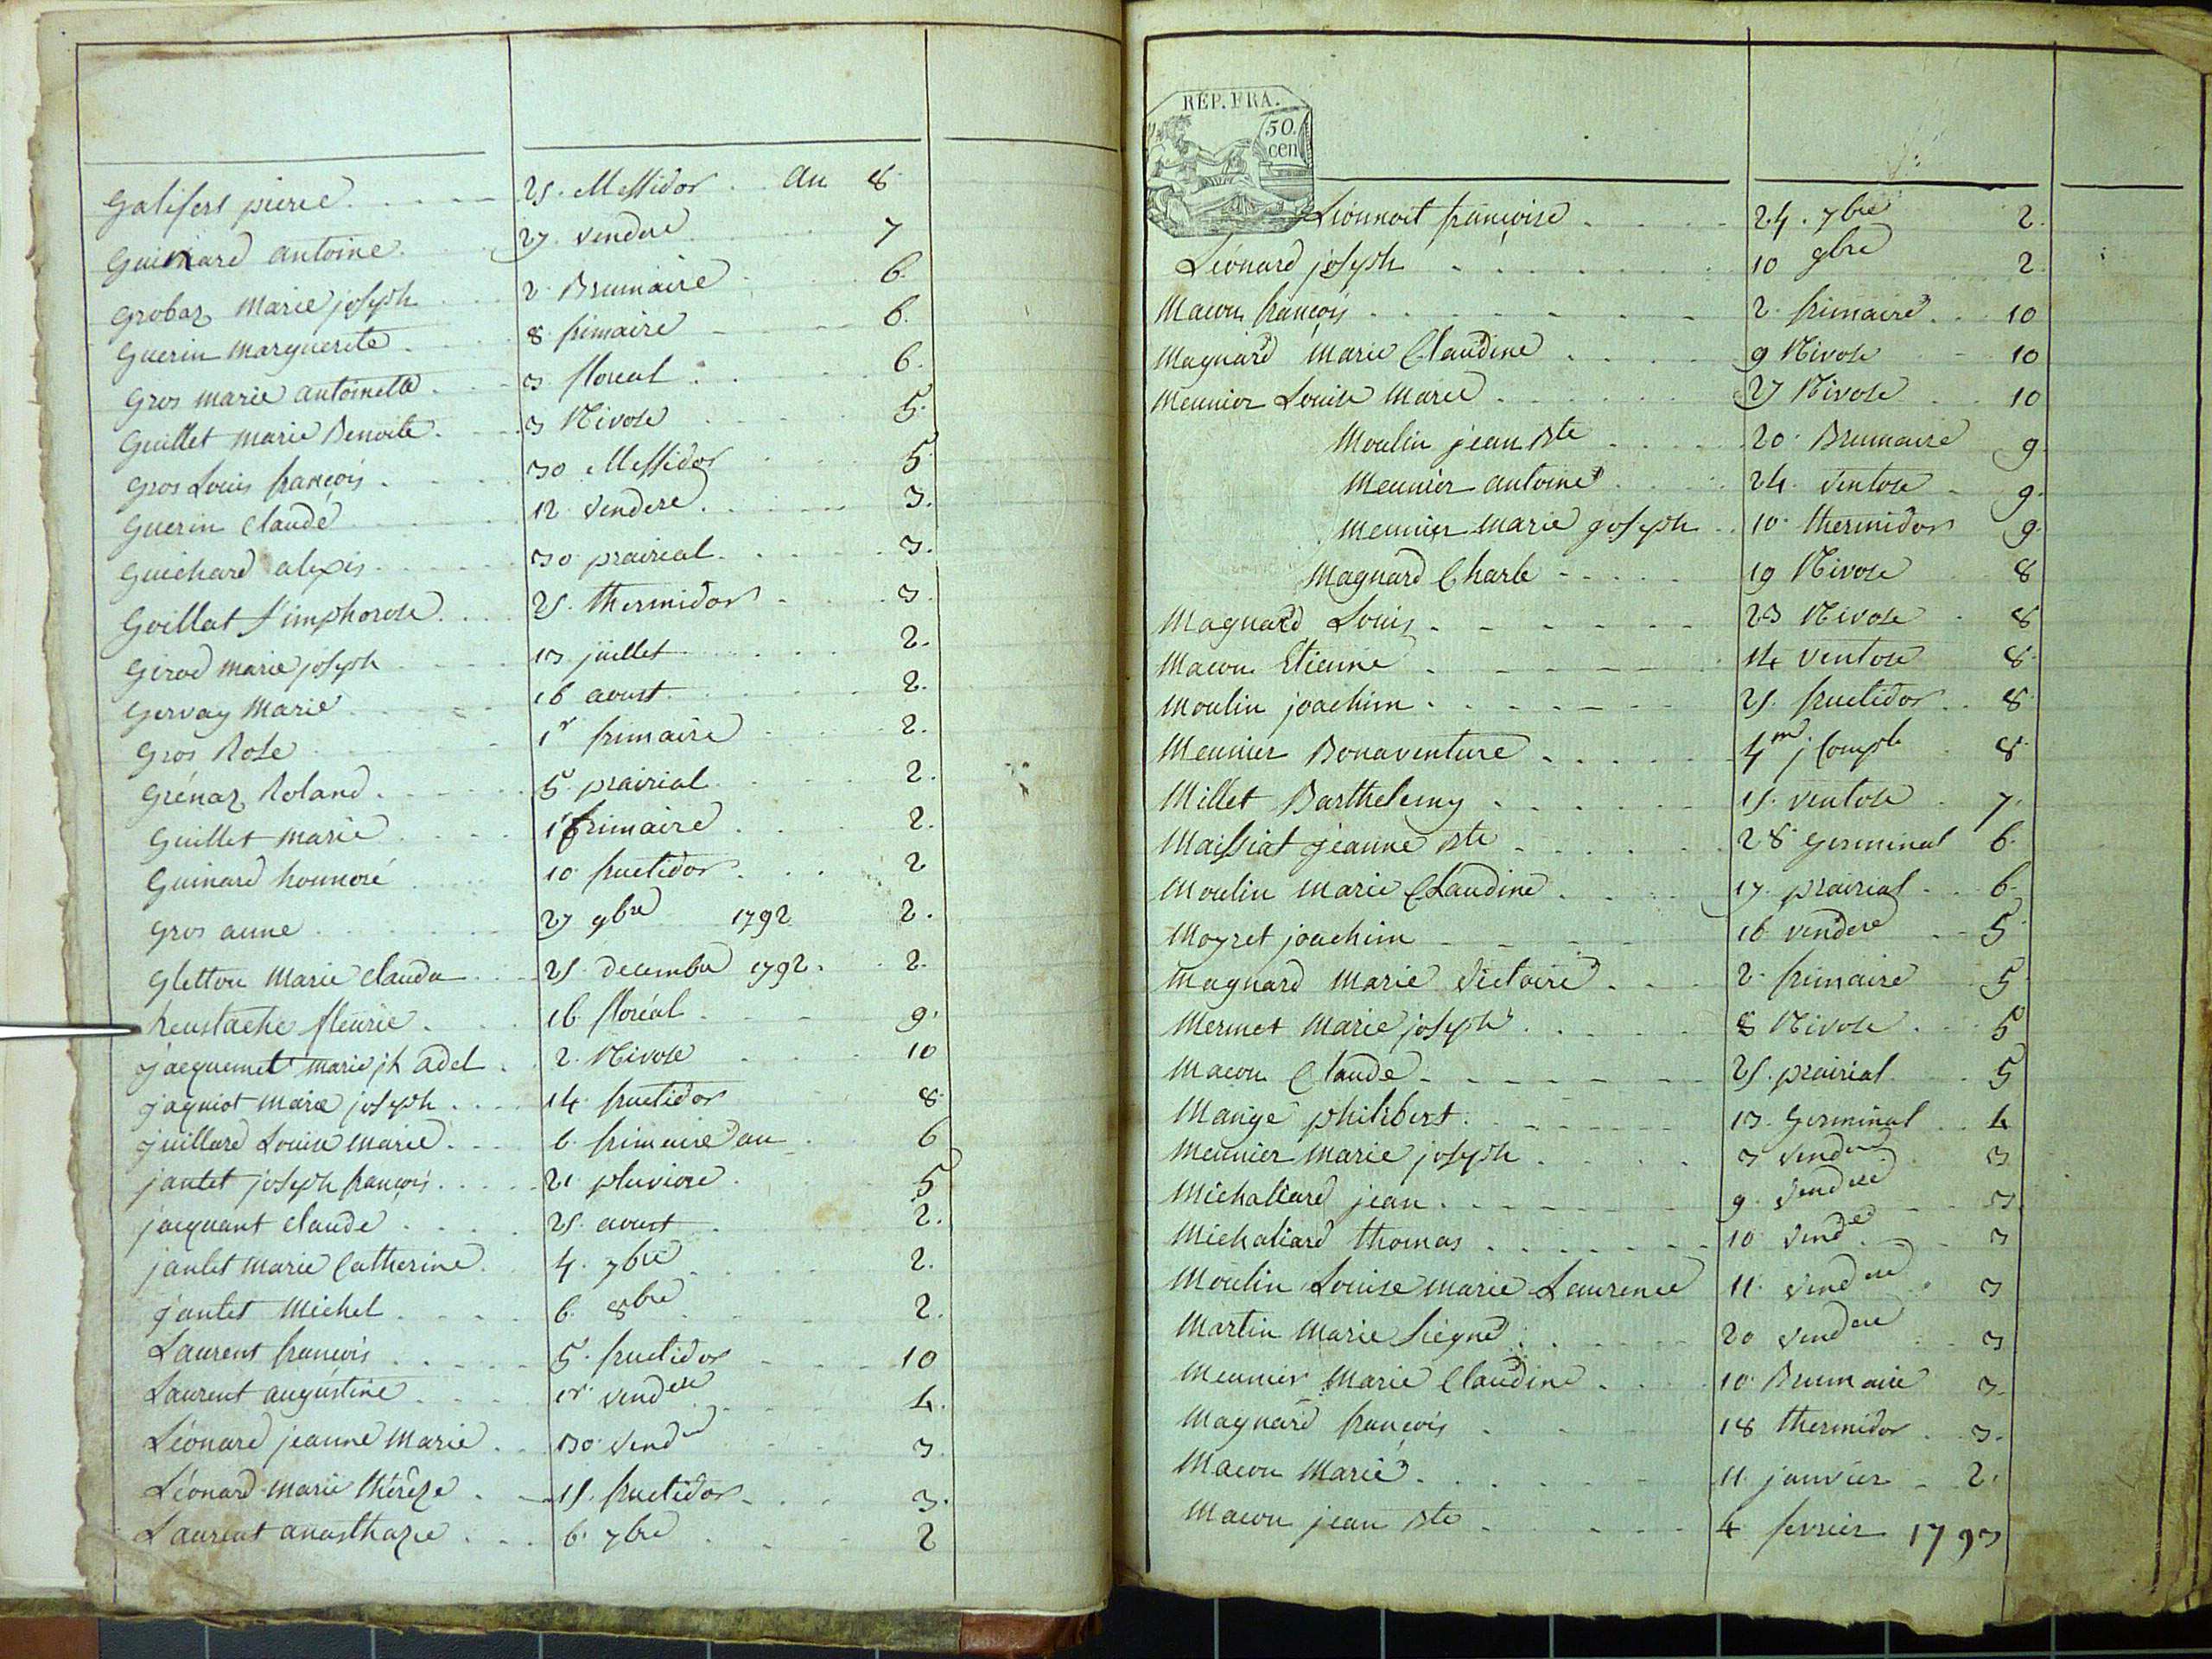 Galifert pierre 25. Messidor an 8
Guinard antoine 27. vendre 7
Grobaz Marie joseph 2. Brumaire 6
Guerin Marguerite 8 frimaire 6.
Gros marie antoinette 3 floreal 6.
Guillet marie Benoite 3 Nivose 5
Gros Louis françois 30 Messidor 5
Guerin Claude 12 Vendere 3.
Guichard alexis 30 prairial 3.
Goillat Simphorose 25. thermidor 3
Girod marie joseph 13 juillet 2.
Gervay Marie 16 aoust 2.
Gros Rose 1r frimaire 2.
Grénaz Roland 5 prairial 2.
Guillet Marie frimaire 2.
Guinard honnoré 10 fructidor 2
Gros anne 27 9bre 1792 2.
Gletton Marie Clauda 25. decembre 1792. 2.
heustache fleurie 16 floréal 9.
jacquemet marie jh adel 2. Nivose 10
jaquiot marie joseph 14 fructidor 8
juillard Louise Marie 6. frimaire an 6
jantet joseph françois 21 pluviose 5
jacquant claude 25. aoust 2.
jantet Marie Catherine 4. 7bre 2.
jantet Michel 6. 8bre 2.
Laurent françois 5. fructidor 10
Laurent augustine 1r. vendere 4.
Léonard jeanne Marie 30 vend 3.
Léonard marie thérèze 15. fructidor 3.
Laurent anasthazie 6. 7bre 2
RÉP. FRA.
50. cen
Léonnoit françoise 24. 7bre 2.
Léonard joseph 10 9bre 2
Macon françois 2. frimaire 10
Magnard Marie Claudine 9 Nivose 10
Meunier Louise Marie 27 Nivose 10
Moulin jean Bte 20. Brumaire 9.
Meunier antoine 24. Ventose 9.
Meunier Marie joseph 10. thermidor 9.
Magnard Charle 19 Nivose 8
Magnard Louis 23 Nivose 8
Macon Etienne 14 ventose 8.
Moulin joachim 25. fructidor 8.
Meunier Bonaventure 4me j Comple 8.
Millet Barthelemy 15. ventose 7.
Maissiat jeanne Bte 28 Germinal 6.
Moulin Marie Claudine 17. prairial 6.
Moyret joachim 16 vendere 5
Magnard Marie Victoire 2. frimaire 5.
Mermet Marie joseph 8 Nivose 5
Macon Claude 25. prairial 5
Mange philibert 13. Germinal 4
Meunier Marie joseph 3 vendere 3
Michaliard jean 9. vendere 3.
Michaliard thomas 10 vende 3
Moulin Louise marie Laurence 11. vendere 3
Martin Marie 20 vendere 3
Meunier Marie Claudine 10 Brumaire 3.
Magnard françois 18 thermidor 3.
Macon Marie 11 janvier 2.
Macon jean Bte 4 fevrier 1793